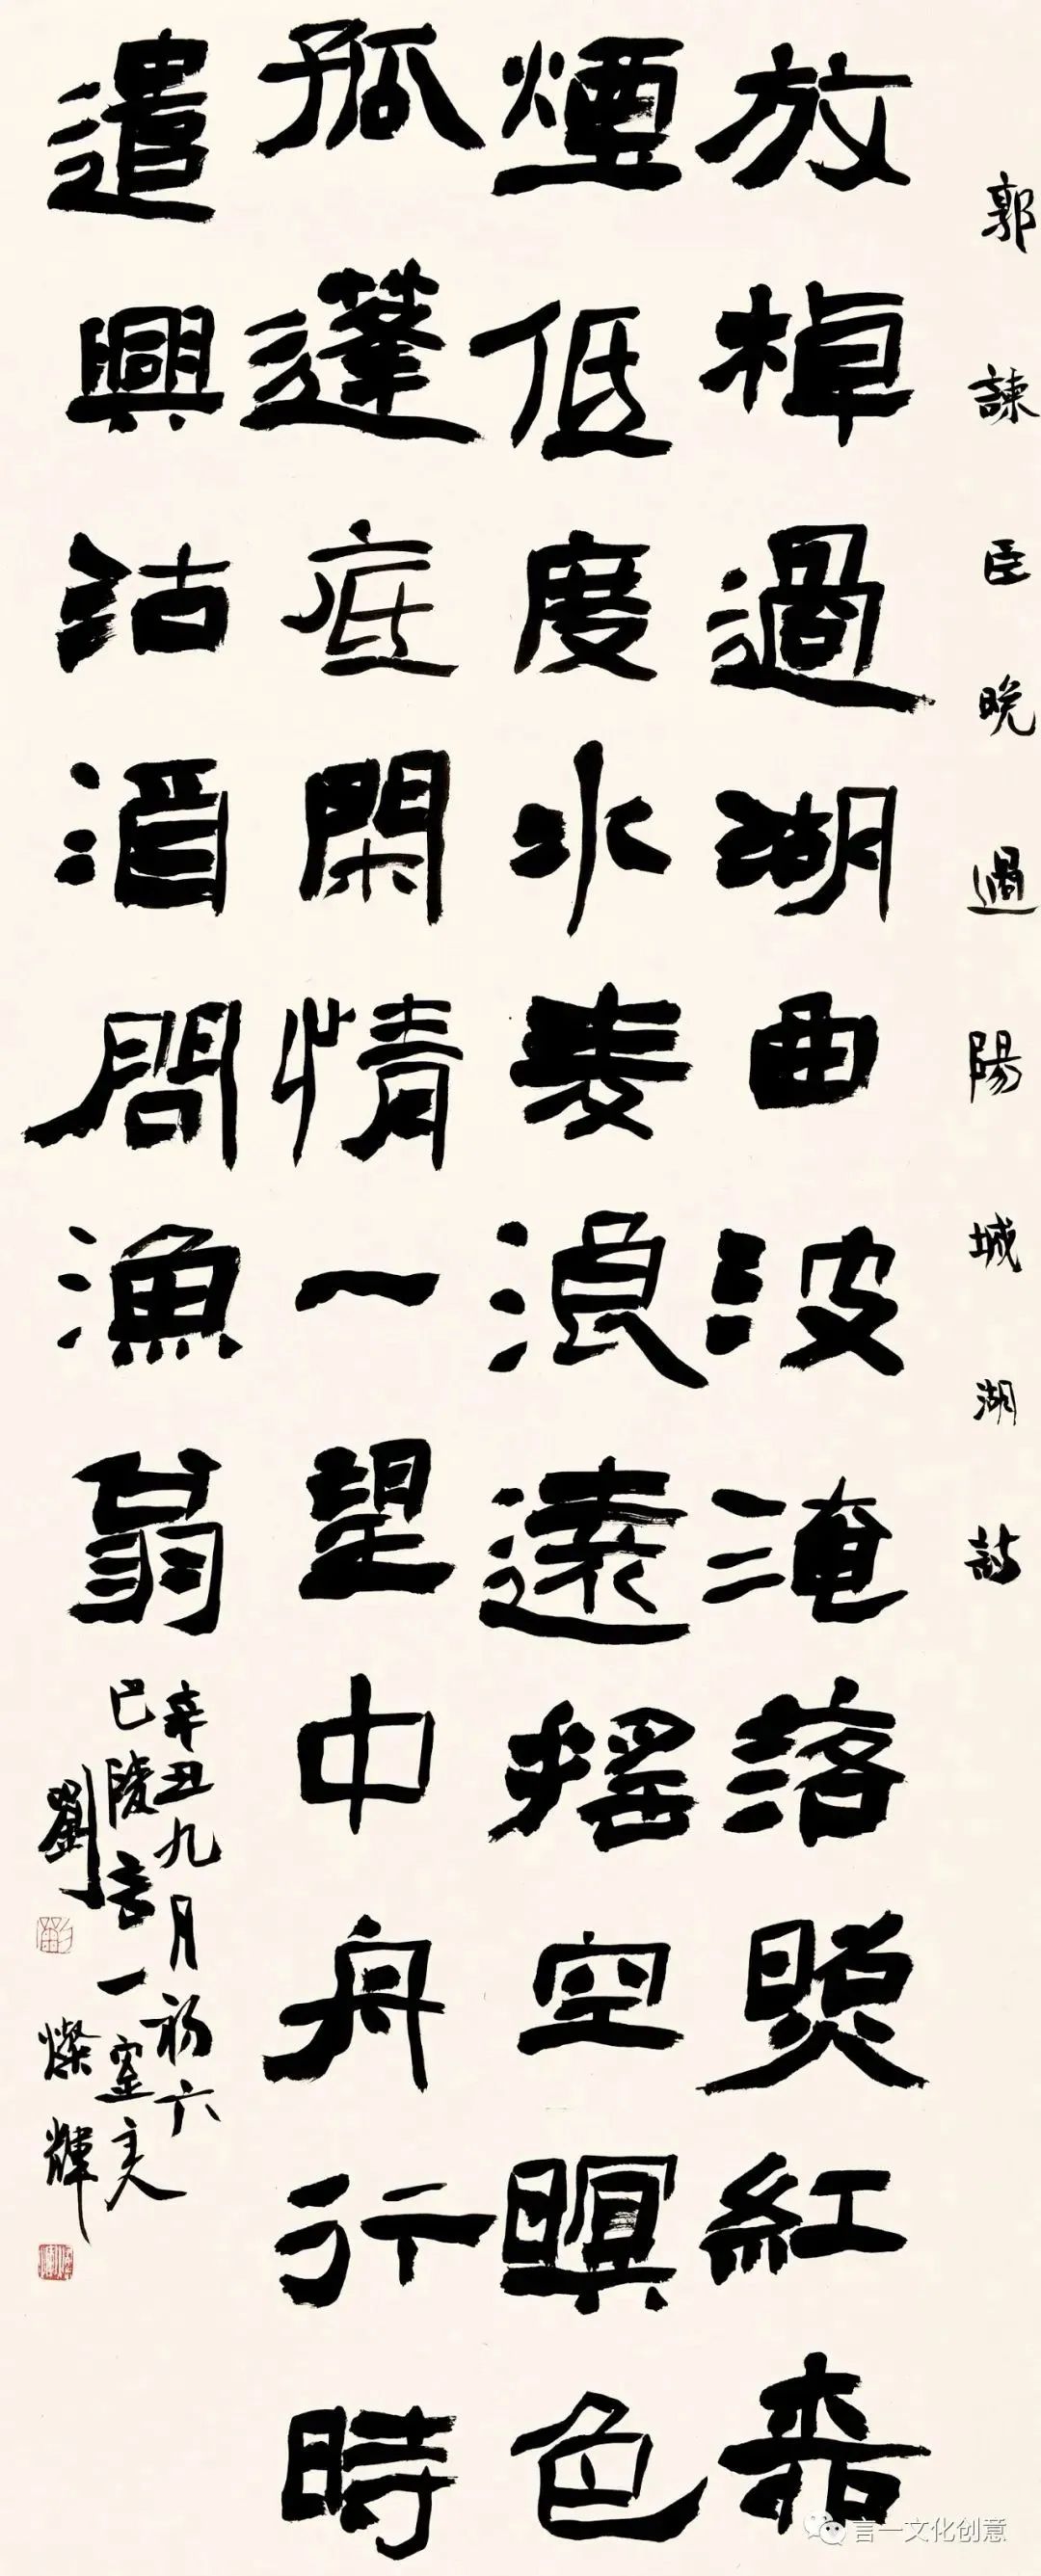 郭諫臣晚過陽城湖詩
放棹過湖曲波淹落照紅春
煙低度水麥浪遠搖空暝色
孤蓬底閑情一望中舟行時
遣興沽酒問漁翁
辛丑九月初六
巴陵言一室主人
劉燦輝
言一文化创意